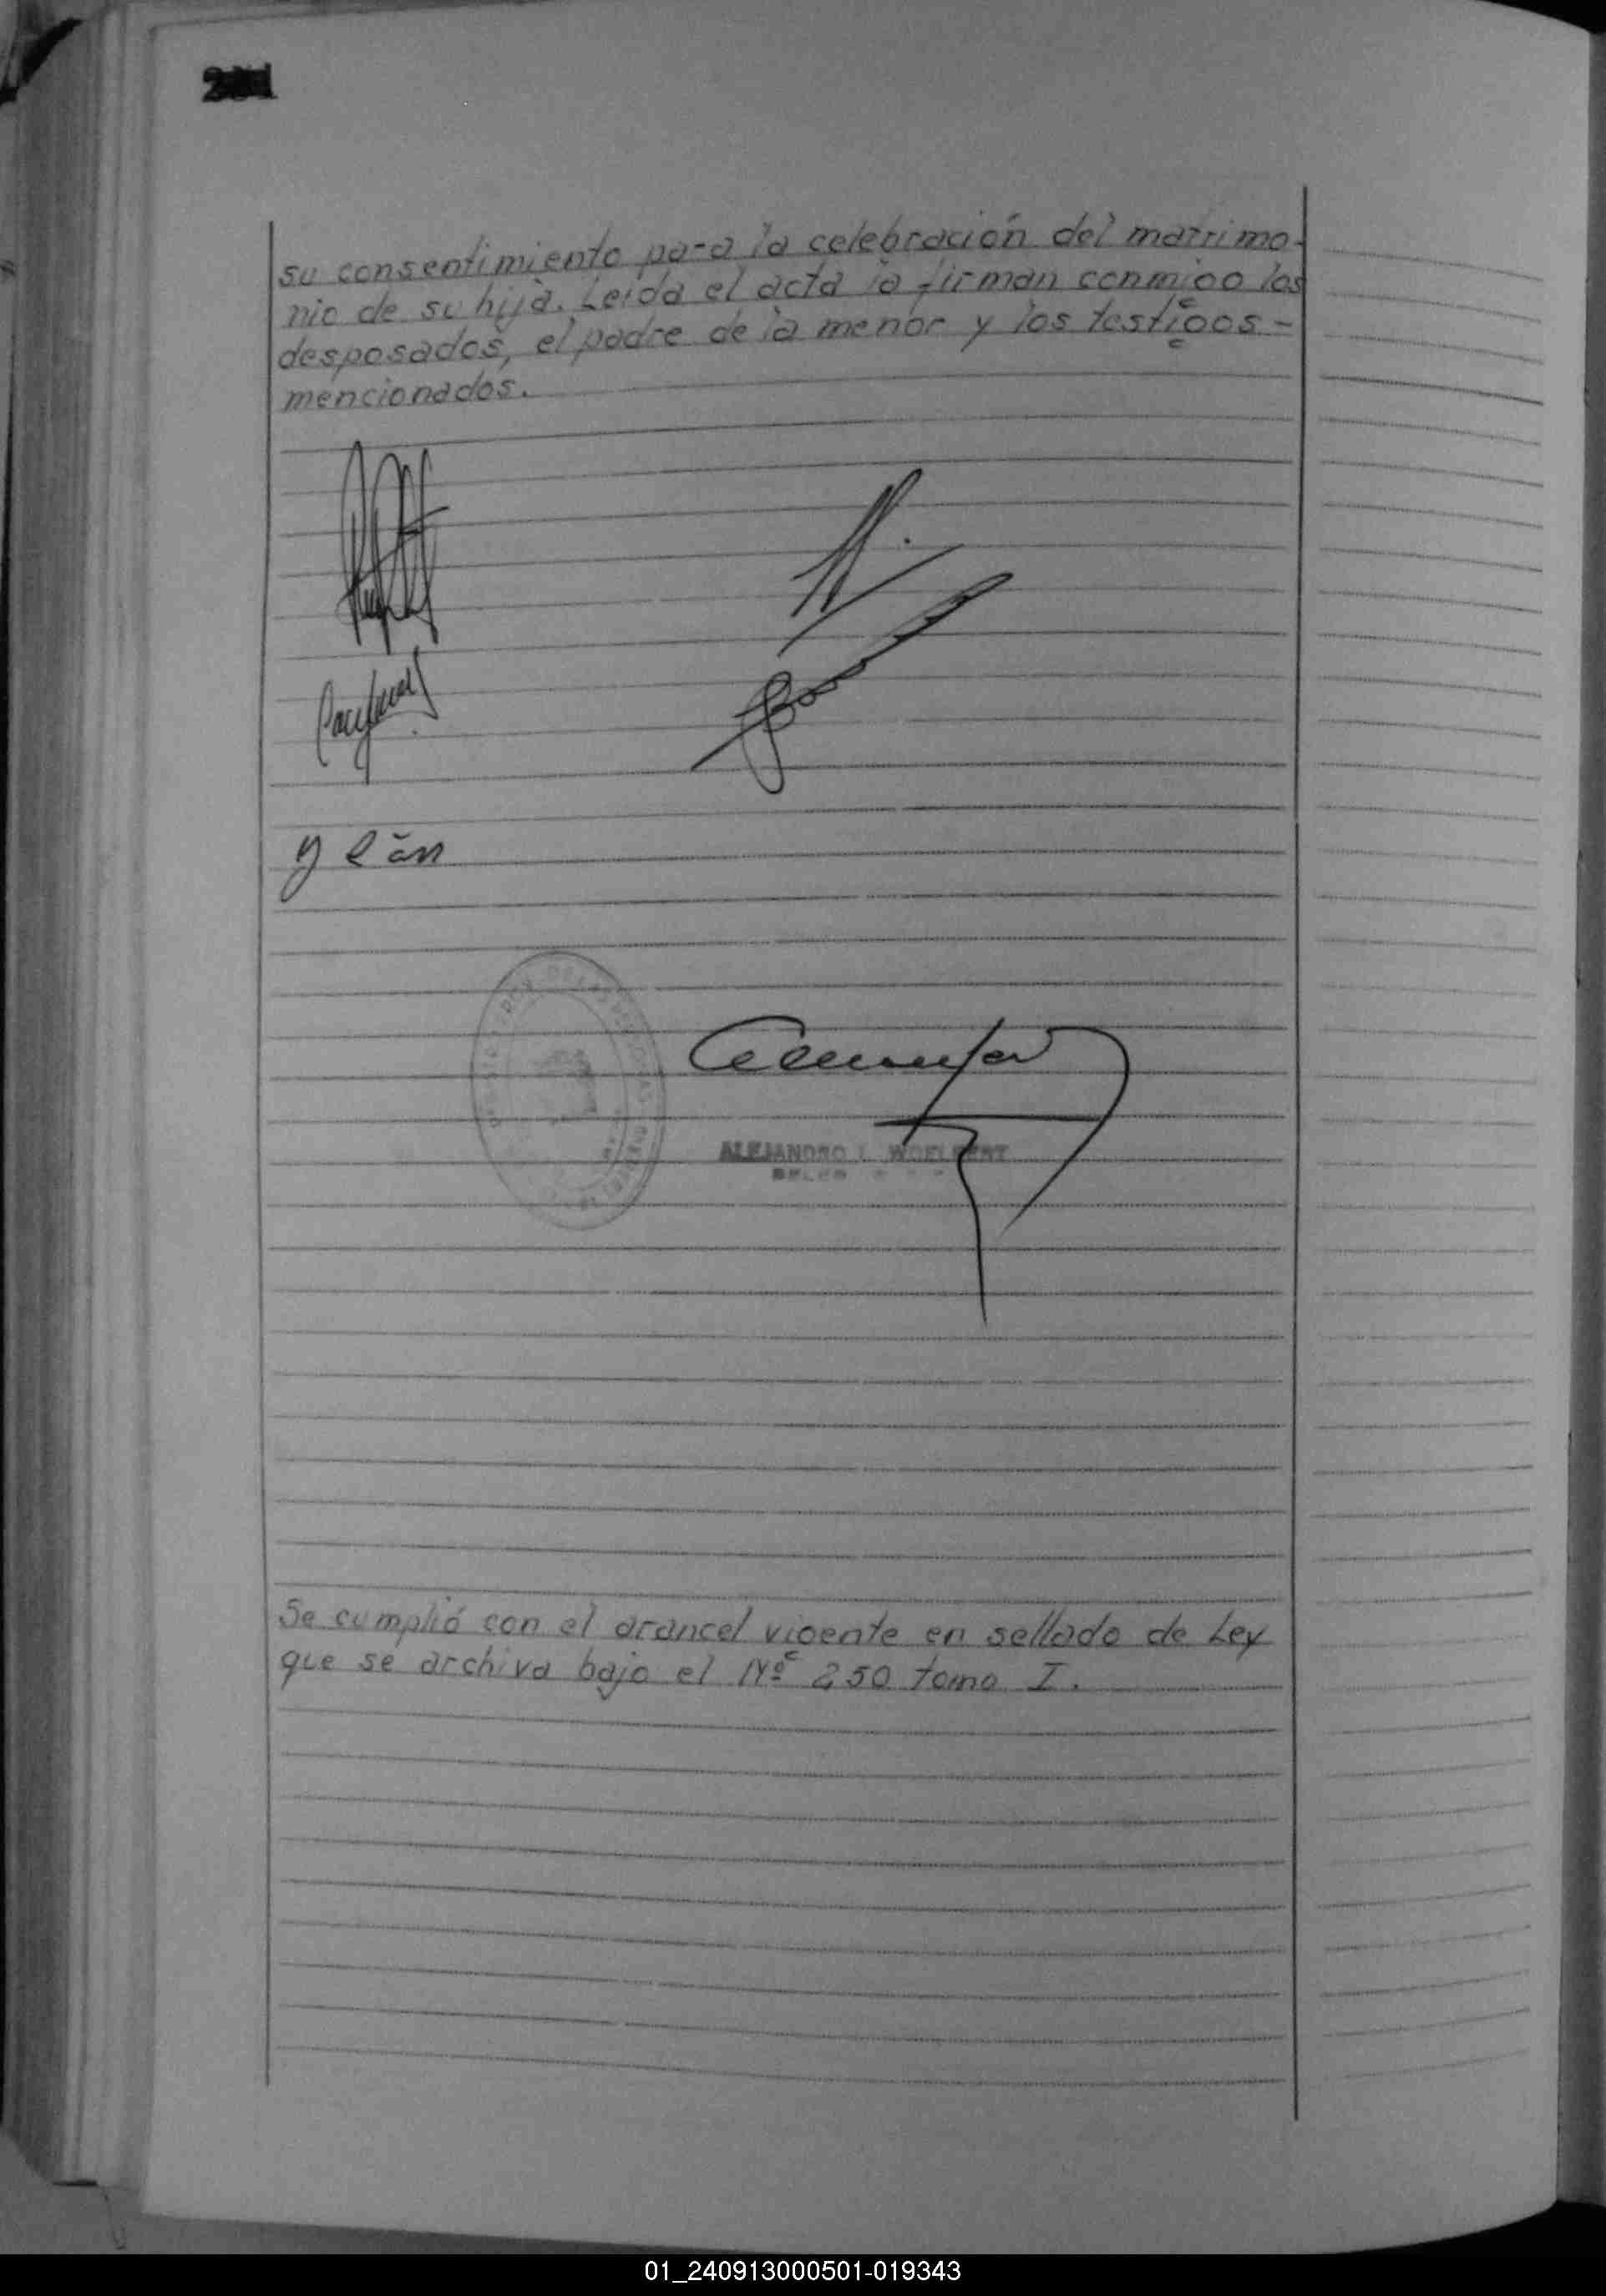 su consentimiento para la celebración del matrimo-
nio de su hija. Leída el acta la firman conmigo los
desposados, el padre de la menor y los testigos-
mencionados.
ALEJANDRO WOELFERT
Se cumplió con el arancel vigente en sellado de Ley
que se archiva bajo el Nº 250 tomo I.
01_240913000501-019343